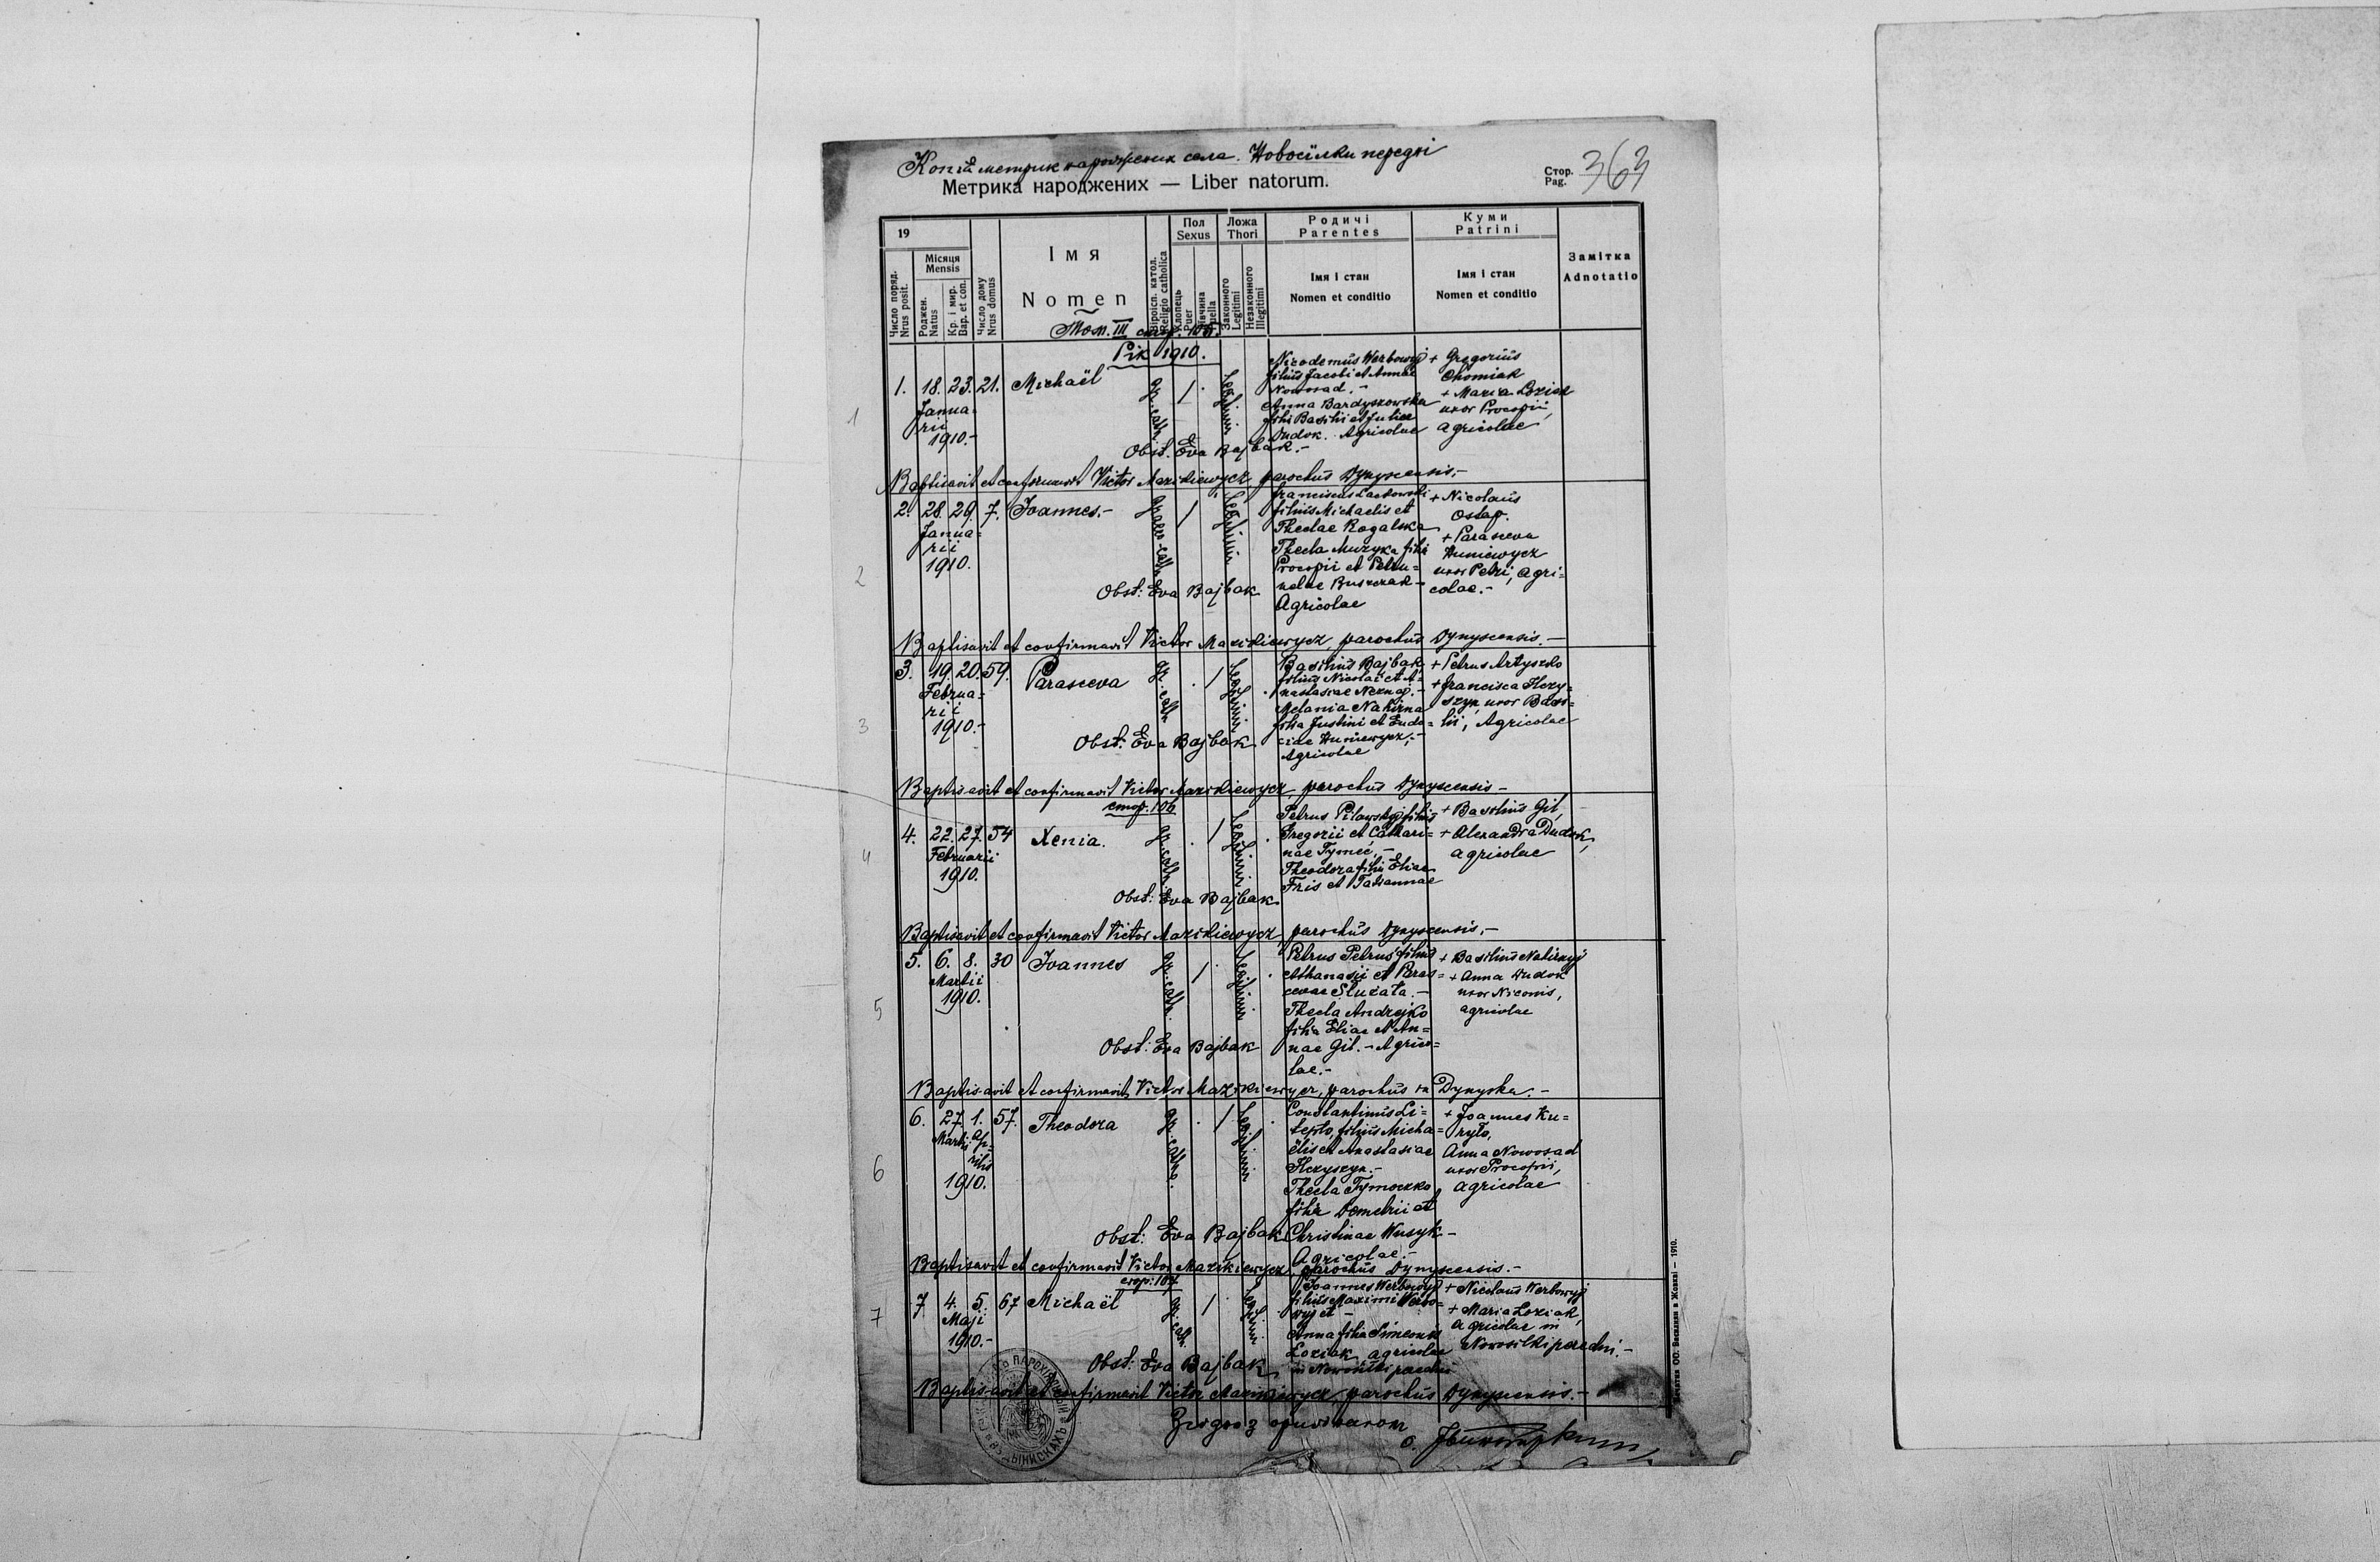 Копія метрик народжених села. Новосїлки передні
Метрика народжених — Liber natorum.
Стор.
Pag.
363
19
Число поряд.
Nrus posit.
Місяця
Mensis
Роджен.
Natus
Кр. і мир.
Bap. et con.
Число дому
Nrus domus
Імя
Nomen
Віроісп. катол.
Religio catholica
Пол
Sexus
Хлопець
Puer
Дївчина
Puella
Ложа
Thori
Законного
Legitimi
Незаконного
Illegitimi
Родичі
Parentes
Імя і стан
Nomen et conditio
Куми
Patrini
Імя і стан
Nomen et conditio
Замітка
Adnotatio
Том. III стор. 105.
Рік 1910.
1
1. 18. 23. 21. Michaël
Janua-
rii
1910.-
gr. cath.
Legitimi
Nicodemus Werbowyj
filius Jacobi et Annae
Nowosad.-
Anna Bardyszowska
filia Basilii et Juliae
Dudok. Agricolae
+ Gregorius
Chomiak
+ Maria Loziak
uxor Procopii,
agricolae
Obst. Eva Bajbak.-
Baptisavit et confirmavit Victor Mazikiewycz parochus Dynyscensis.-
2
2. 28. 29. 7. Joannes.-
Janua=
rii
1910.
graeco-cath.
Legitimi
Franciscus Laskowski
filius Michaelis et
Theclae Rogalska
Thecla Muzyka filia
Procopii et Petru=
nelae Buszczak -
Agricolae
+ Nicolaus
Ostap.
+ Parasceva
Huniewycz
uxor Petri, agri=
colae.-
Obst: Eva Bajbak
Baptisavit et confirmavit Victor Mazikiewycz, parochus Dynyscensis.-
3
3. 19. 20. 59. Parasceva
Februa=
rii
1910.-
gr. cath.
Legitimi
Basilius Bajbak
filius Nicolai et A-
nastasiae Neznaj.-
Melania Nakirna
filia Justini et Eudo=
ciae Huniewycz,-
Agricolae
+ Petrus Artyszko
+ Francisca Hry=
szyn uxor Basi=
lii, Agricolae
Obst: Eva Bajbak
Baptisavit et confirmavit Victor Mazikiewycz, parochus Dynyscensis -
стор: 106
4
4. 22. 27. 54 Xenia.
Februarii
1910.
gr. cath.
Legitimi
Petrus Pilawskyj filius
Gregorii et Cathari=
nae Tymeć.-
Theodora filia Eliae
Fris et Tatiannae
+ Basilius Git,
+ Alexandra Dudok,
agricolae
Obst: Eva Bajbak
Baptisavit et confirmavit Victor Mazikiewycz, parochus Dynyscensis.-
5
5. 6. 8. 30 Joannes
Martii
1910.
gr. cath.
Legitimi
Petrus Petrus filius
Athanasii et Paras=
cevae Sluzała.-
Thecla Andrejko
filia Eliae et An=
nae Git.- Agrico=
lae.-
+ Basilius Nakirnyj
+ Anna Dudok
uxor Niconis,
agricolae
Obst: Eva Bajbak
Baptisavit et confirmavit Victor Mazikiewycz, parochus in Dynyska.-
6
6. 27. 1. 57. Theodora
Martii Ap-
rilis
1910.
gr. cath.
Legitimi
Constantinus Li=
teplo, filius Micha=
ëlis et Anastasiae
Hryszyn.-
Thecla Tymoczko
filia Demetrii et
Christinae Wusyk -
Agricolae.-
+ Joannes Ku=
ryło,
Anna Nowosad
uxor Procopii,
agricolae
Obst: Eva Bajbak
Baptisavit et confirmavit Victor Mazikiewycz, parochus Dynyscensis.-
стор: 107
7
7 4. 5. 67 Michaël
Maji
1910.-
gr. cath.
Legitimi
Joannes Werbowyj
filius Maximi Werbo=
wyj et -
Anna filia Simeonis
Loziak, agricolae
in Nowosilki peredni
+ Nicolaus Werbowyj
+ Maria Loziak,
agricolae in
Nowosilki peredni.-
Obst: Eva Bajbak
Baptisavit et confirmavit Victor Mazikiewycz, parochus Dynyscensis.-
Згідно з оригіналом
о.